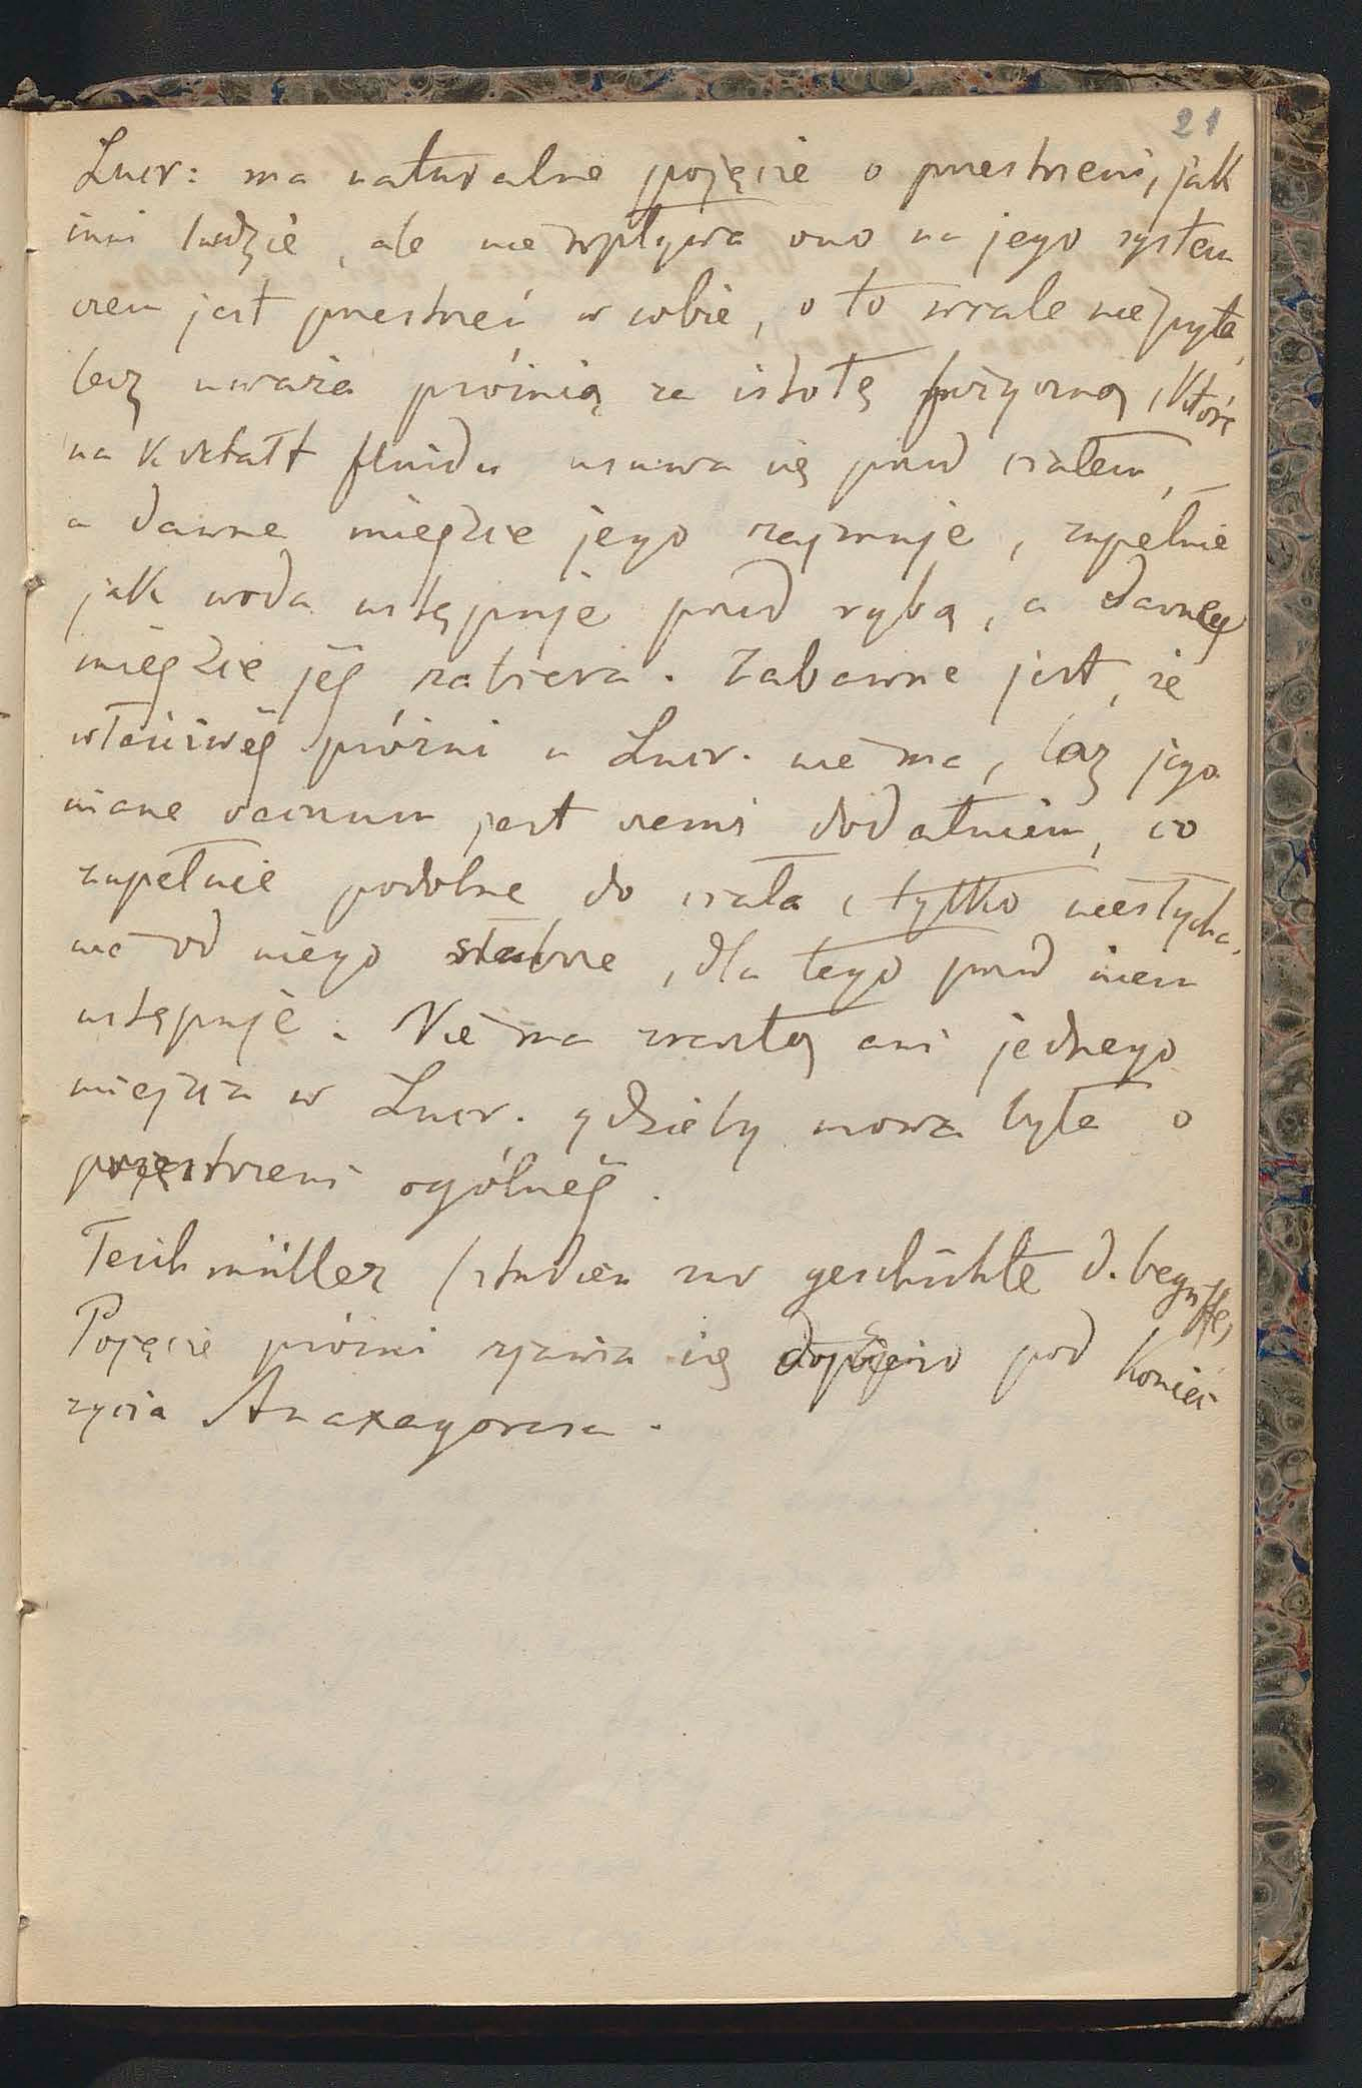 21
Lucr: ma naturalne pojęcie o przestrzeni, jak
inni ludzie, ale nie wpływa ono na jego system
czem jest przestrzeń w sobie, o to wcale nie pyta,
lecz uważa próżnią za istotę fizyczną, która
na kształt fluidu usuwa się przed ciałem,
a dawne miejsce jego zajmuje, zupełnie
jak woda ustępuje przed rybą, a dawne
miejsce jéj zabiera. Zabawne jest, że
właściwéj próżni u Lucr. nie ma, lecz jego
inane vacuum jest czemś dodatniem, co
zupełnie podobne do ciała, tylko niesłycha-
nie od niego słabsze, dla tego przed niem
ustępuje. Nie ma zresztą ani jednego
miejsca w Lucr. gdzieby mowa była o
przestrzeni ogólnéj.
Teichmüller (studien zur geschichte d. begriffe)
Pojęcie próżni zjawia się dopiero pod koniec
życia Anaxagorasa.